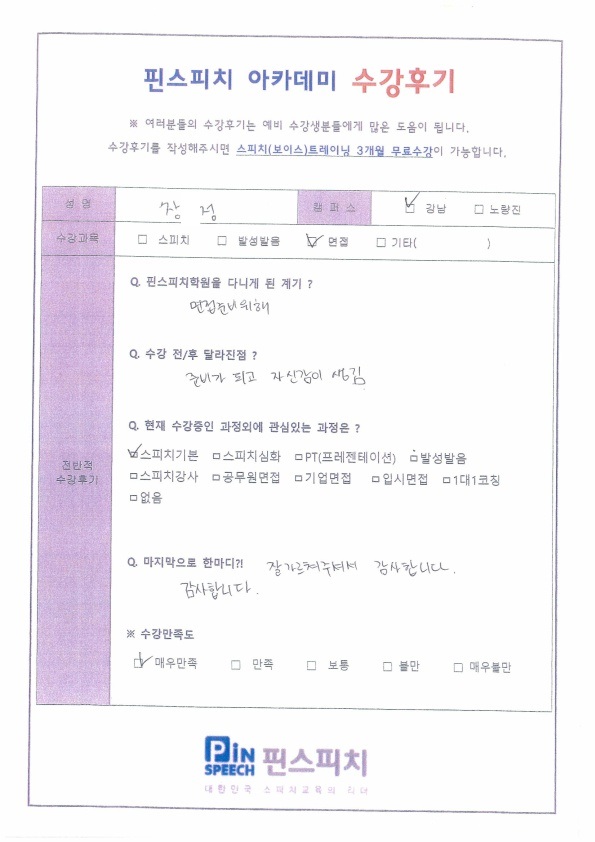 핀스피치 아카데미 수강후기
※ 여러분들의 수강후기는 예비 수강생분들에게 많은 도움이 됩니다.
수강후기를 작성해주시면 스피치(보이스)트레이닝 3개월 무료수강이 가능합니다.
성 명 장 정 캠 퍼 스 ☑ 강남 □ 노량진
수강과목 □ 스피치 □ 발성발음 ☑ 면접 □ 기타( )
Q. 핀스피치학원을 다니게 된 계기 ?
면접준비위해
Q. 수강 전/후 달라진점 ?
준비가 되고 자신감이 생김
Q. 현재 수강중인 과정외에 관심있는 과정은 ?
☑스피치기본 □스피치심화 □PT(프레젠테이션) □발성발음
전반적
수강후기
□스피치강사 □공무원면접 □기업면접 □입시면접 □1대1코칭
□없음
Q. 마지막으로 한마디?! 잘가르쳐주셔서 감사합니다.
감사합니다.
※ 수강만족도
☑ 매우만족 □ 만족 □ 보통 □ 불만 □ 매우불만
PiN SPEECH 핀스피치
대한민국 스피치교육의 리더